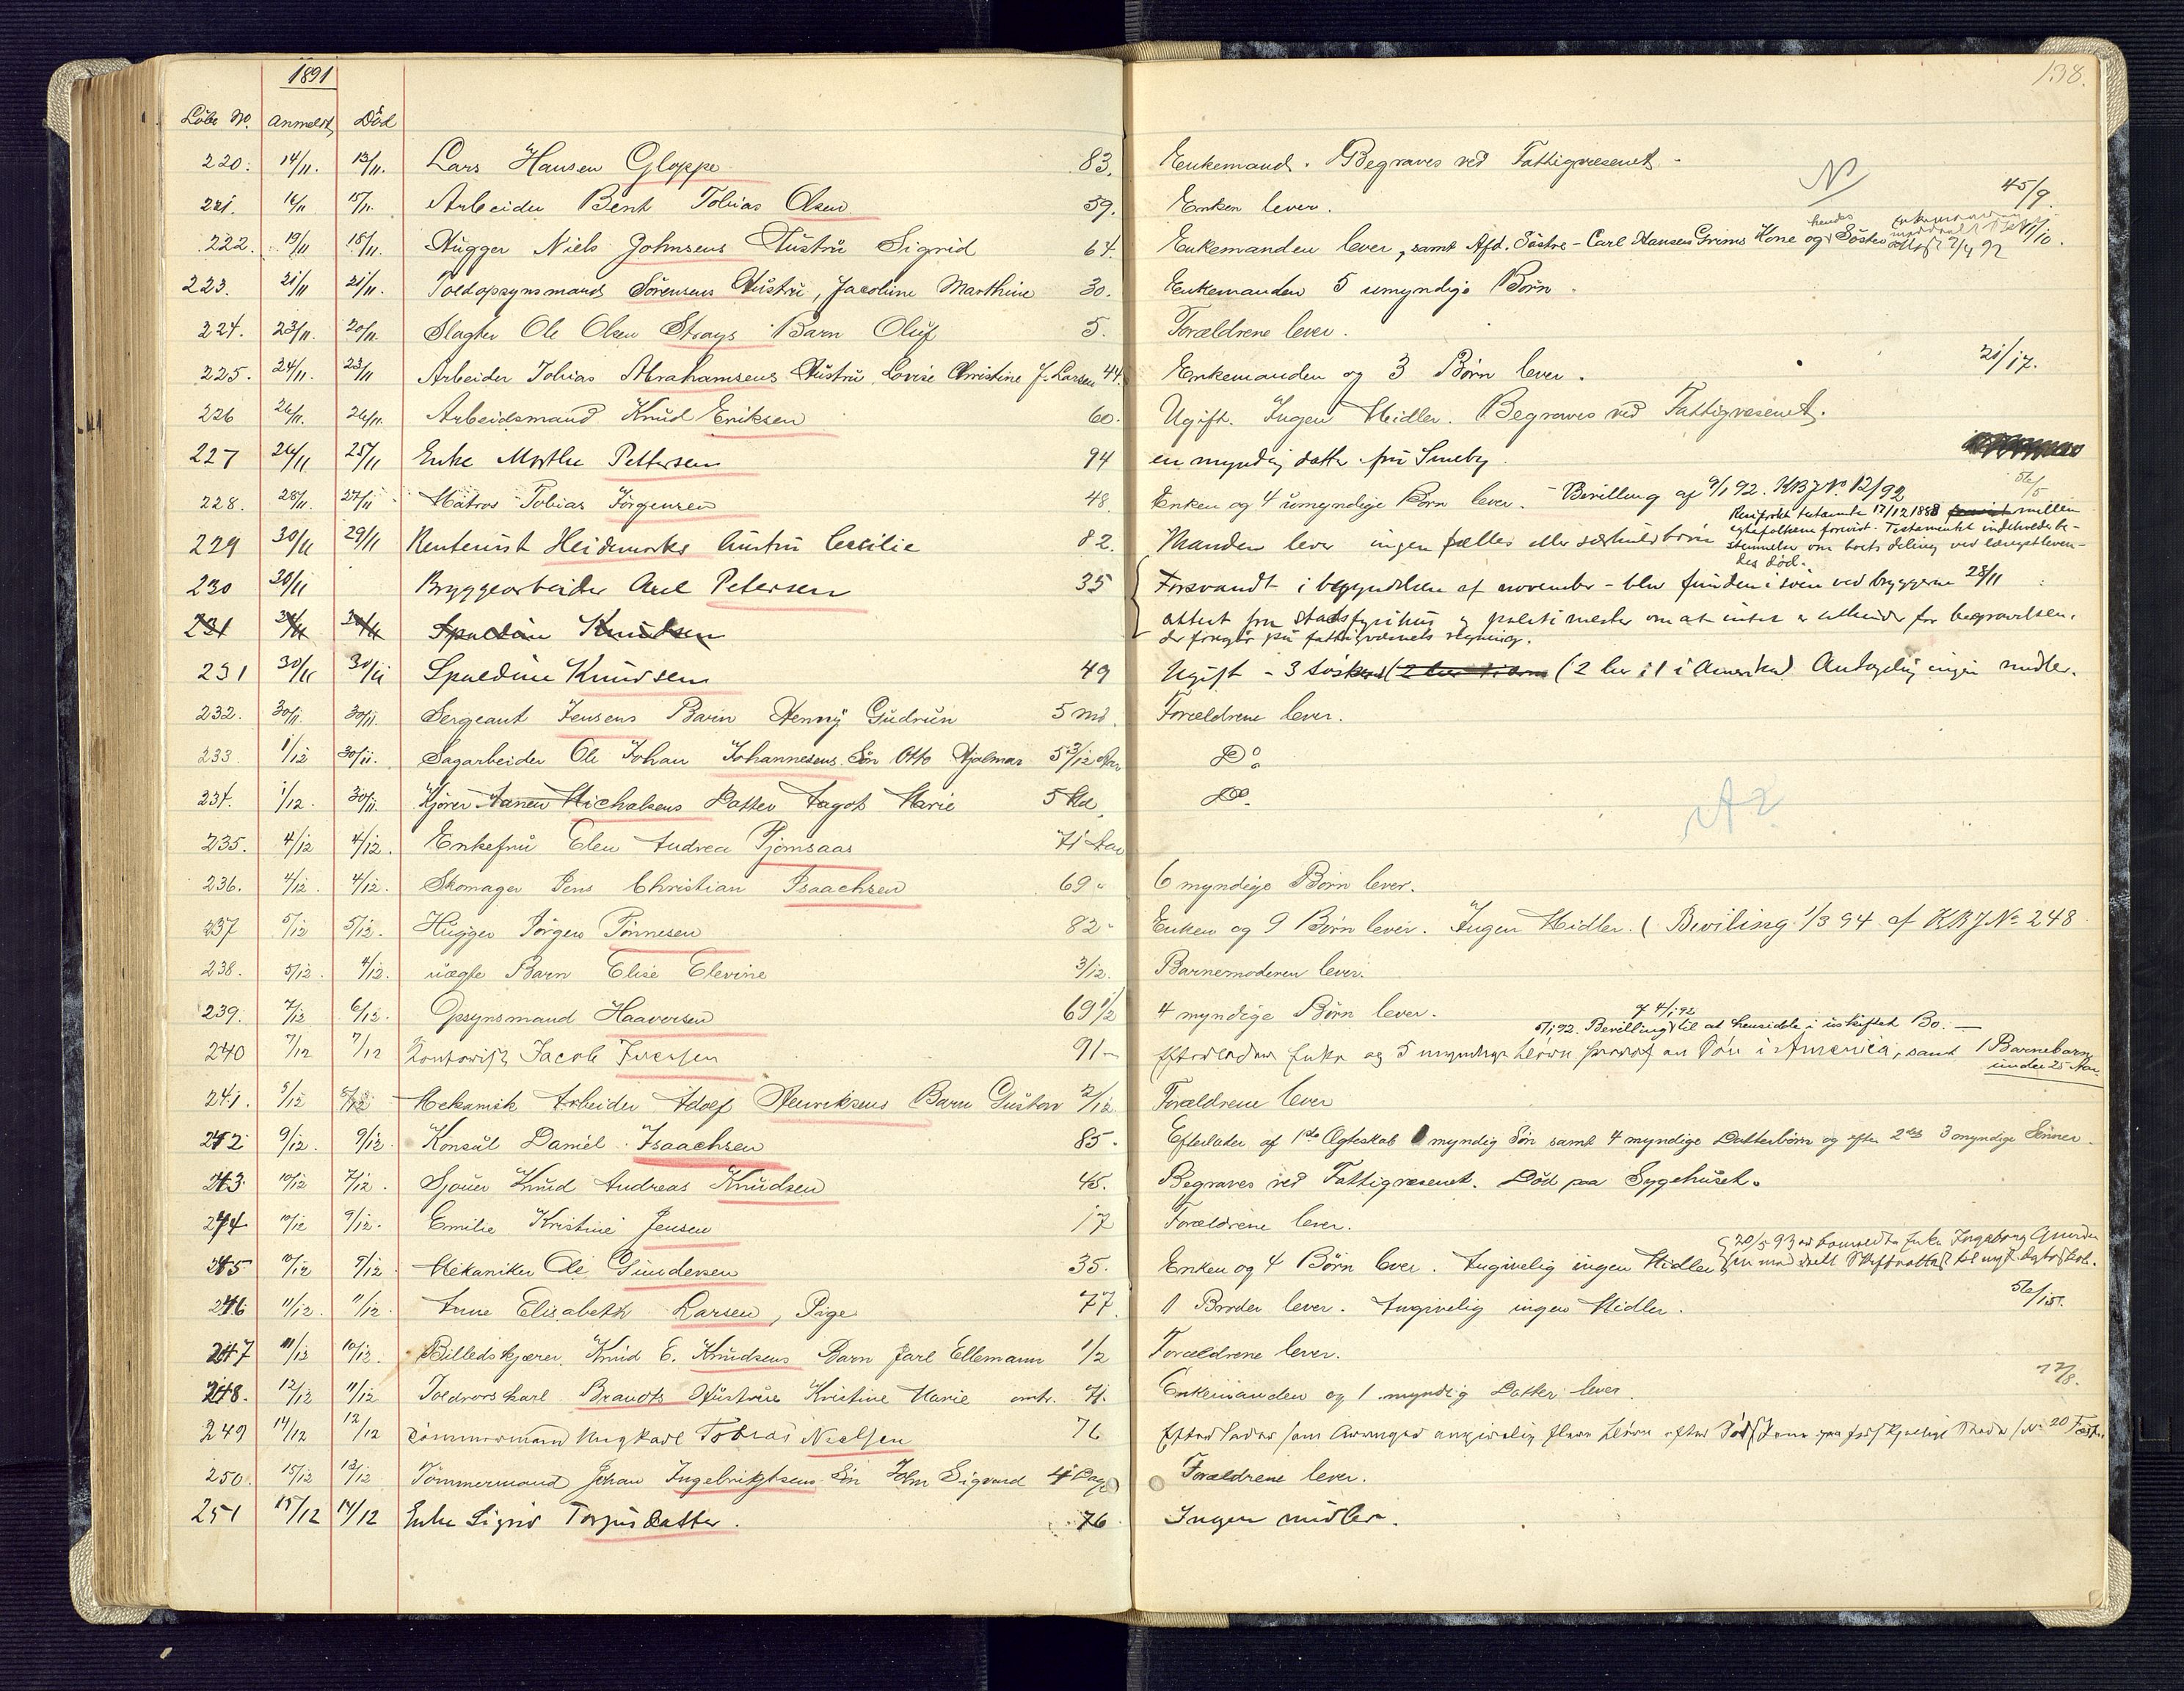 1891
138.
Löbe No. Anmeldt Död
220. 14/11. 13/11. Lars Hansen Gloppe 83. Enkemand. Begraves ved Fattigvæsenet.
N
45/9.
221. 16/11 15/11. Arbeider Bent Tobias Olsen 59. Enken lever.
hendes
222. 19/11 18/11. Hugger Niels Johnsens Hustru Sigrid 64. Enkemanden lever, samt Afd. Söstre - Carl Hansen Grims Kone og Söster 11/10.
223. 21/11 21/11. Toldopsynsmand Sörensens Hustru, Jacobine Marthine 30. Enkemanden 5 umyndige Börn.
224. 23/11. 20/11. Slagter Ole Olsen Strays Barn Oluf 5. Forældrene lever.
225. 24/11. 23/11 Arbeider Tobias Abrahamsens Hustru Lovise Christine f. Larsen 44. Enkemanden og 3 Börn lever. 21/17.
226 26/11. 26/11. Arbeidsmand Knud Eriksen 60. Ugift. Ingen Midler. Begraves ved Fattigvæsenet.
227 26/11 25/11 Enke Marthe Pettersen 94 en myndig datter fru Smeby.
228. 28/11. 27/11 Matros Tobias Jörgensen 48. Enken og 4 umyndige Börn lever. - Bevilling af 9/1 92. KBJ No. 12/92 56/5
Resiprokt testamente 17/12 1888 mellem
229 30/11 29/11 Renterist Heidemarks hustru Cecilie 82. Manden lever ingen fælles eller særkuldsbörn
ægtefolkene forevist. Testamentet indeholder be-
stemmelse om boets deling ved længstleven-
des död.
230 30/11 Bryggearbeider Axel Petersen 35 Forsvandt i begyndelsen af november - blev funden i söen ved bryggerne 28/11
231 30/11 30/11 Spaldine Knudsen attest fra Stadsfysikus og politimester om at intet er til hinder for begravelsen.
der foregår på fattigvæsenets regning.
231 30/11 30/11 Spaldine Knudsen 49 Ugift - 3 söskend (2 her 1 i Amerika) Antagelig ingen midler.
232. 30/11. 30/11. Sergeant Jensens Barn Henny Gudrun 5 md. Forældrene lever.
233. 1/12 30/11. Sagarbeider Ole Johan Johannesens Sön Otto Hjalmar 5 3/12 Aar Do
234. 1/12. 30/11. Kjörer Aanen Michalsens Datter Aagot Marie 5 Md. Do.
235. 4/12 4/12. Enkefru Elen Andrea Tjomsaas 71 Aar
236. 4/12. 4/12. Skomager Jens Christian Isaachsen 69 " 6 myndige Börn lever.
237 5/12 5/12. Hugger Jörgen Tönnesen 82 " Enken og 9 Börn lever. Ingen Midler. (Beviling 1/3 94 af KBJ No 248
238. 5/12. 4/12. uægte Barn Elise Elevine 3/12. Barnemoderen lever.
239. 7/12 6/12. Opsynsmand Haaversen 69 1/2 4 myndige Börn lever.
af 4/1 92
5/1 92. Bevilling til at hensidde i uskiftet Bo. —
240 7/12 7/12 Jacob Iversen 91 - Efterlader Enke og 5 myndige Börn hvoraf en Sön i America, samt 1 Barnebarn
under 25 Aar.
241. 8/12 8/12 Mekanisk Arbeider Adolf Henriksens Barn Gustav 2/12 Forældrene lever
242 9/12. 9/12. Konsul Daniel Isaachsen 85. Efterlader af 1ste Ægteskab myndig Sön samt 4 myndige Datterbörn og efter 2det 3 myndige Sönner.
243. 10/12 7/12. Sjouer Knud Andreas Knudsen 45. Begraves ved Fattigvæsenet. Död paa Sygehuset.
244 10/12 9/12. Emilie Kristine Jensen 17 Forældrene lever.
20/5 93 Enke Ingeborg Gunder
245 10/12 9/12. Mekaniker Ole Gundersen 35. Enken og 4 Börn lever. Angivelig ingen Midler
sen meddelt Skifteattest til nyt Ægteskab.
246 11/12. 11/12. Anne Elisabeth Larsen, Pige 77 1 Broder lever. Angivelig ingen Midler. 56/151.
247 11/12 10/12. Billedskjærer Knud E. Knudsens Barn Jarl Ellemann 1/2 Forældrene lever.
248. 12/12 11/12 Toldrorskarl Brandts Hustrue Kristine Marie omtr. 71. Enkemanden og 1 myndig Datter lever. 72/8.
249 14/12 12/12 Tömmermand Ungkarl Tobias Nielsen 76
250. 15/12 13/12 Tömmermand Johan Ingebrigtsens Sön John Sigvard 4 Dage Forældrene lever.
251 15/12 14/12 Enke Sigrid Torjusdatter. 76 Ingen midler.